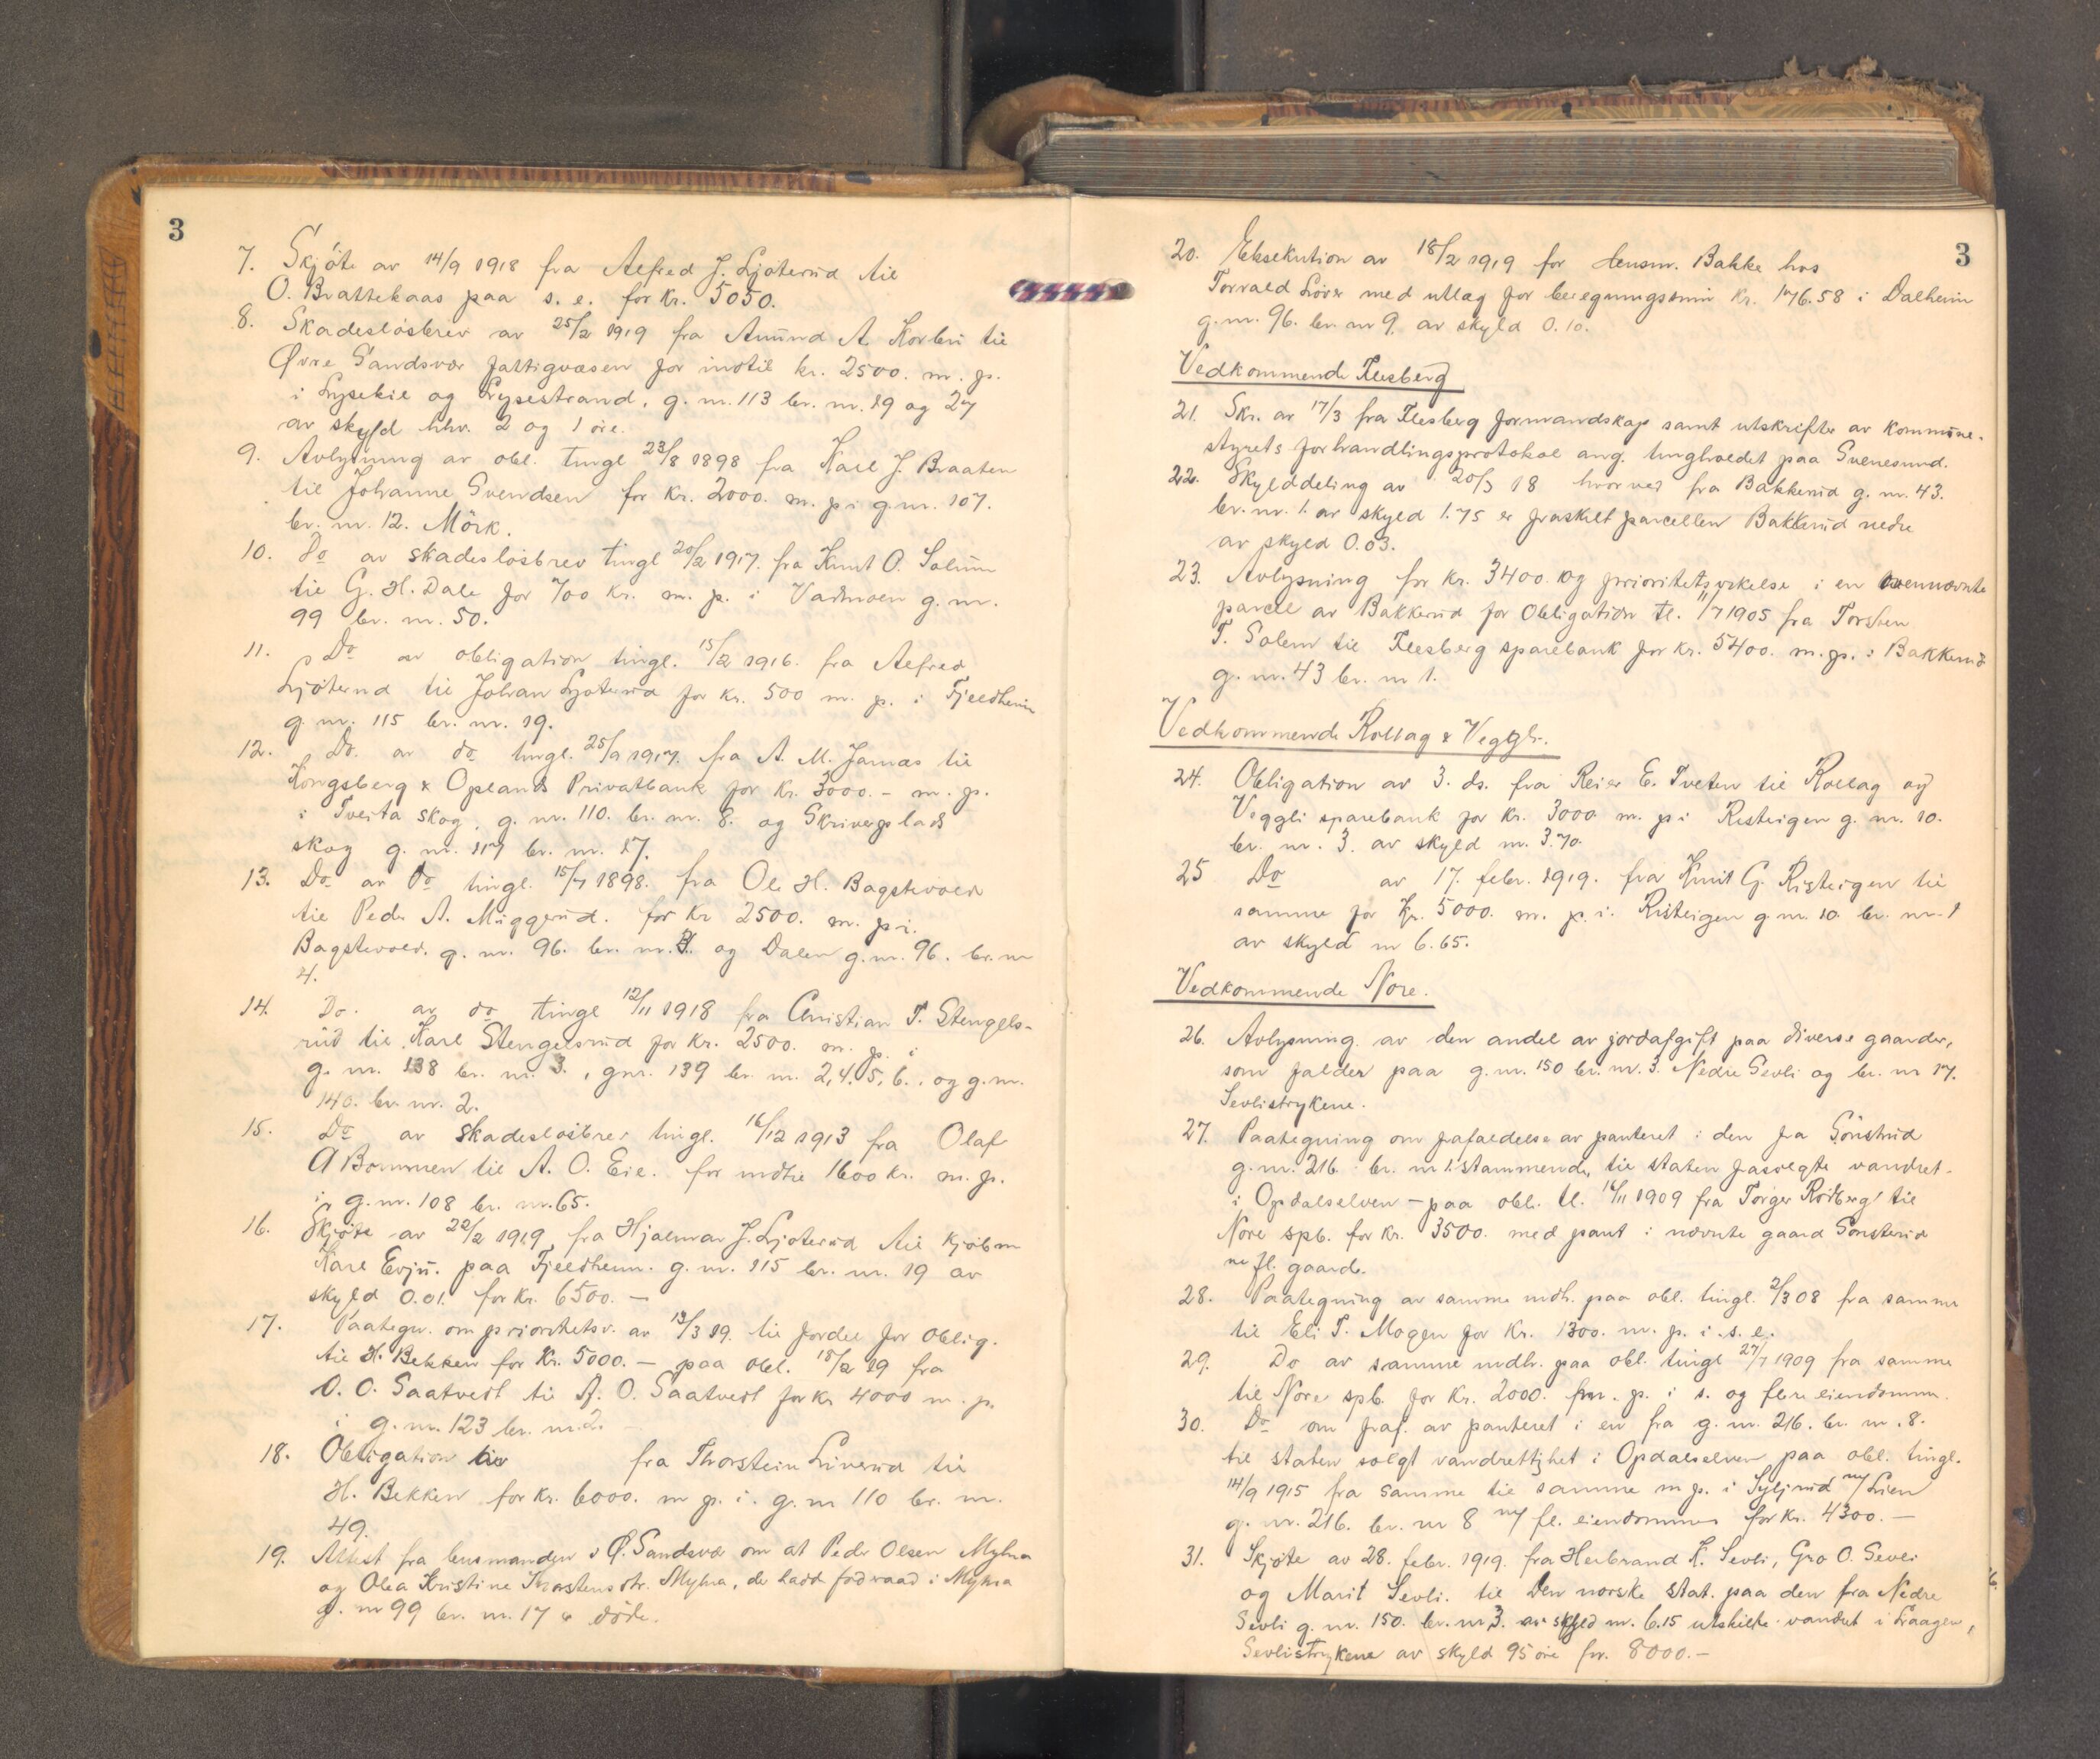 3
7. Skjöte av 14/9 1918 fra Alfred J. Ljöterud til
O. Brattekaas paa s. e. for kr. 5050.
8. Skadeslösbrev av 25/2 1919 fra Amund A. Korbu til
Øvre Sandsvær fattigvæsen for indtil kr. 2500. m. p.
i Lysekil og Lysestrand, g. nr. 113 br. nr. 19 og 27
av skyld hhv. 2 og 1 øre.
9. Avlysning av obl. tingl 23/8 1898 fra Karl J. Braaten
til Johanne Svendsen for kr. 2000. m. p i g. nr. 107.
br. nr. 12. Mörk.
10. Do av skadeslösbrev tingl 20/2 1917. fra Knut O. Solum
til G. H. Dale for 700 kr. m. p. i Vadmoen g. nr.
99 br. nr. 50.
11. Do av obligation tingl. 15/2 1916. fra Alfred
Ljöterud til Johan Ljöterud for kr. 500 m. p. i Fjeldheim
g. nr. 115 br. nr. 19.
12. Do. av do tingl. 25/9 1917. fra A. M. Jamas til
Kongsberg & Oplands Privatbank for kr. 3000.- m. p.
i Tveita skog, g. nr. 110. br. nr. 8. og Skriverplads
skog g. nr. 117 br. nr. 17.
13. Do av do tingl. 15/7 1898. fra Ole H. Bagstevold
til Peder A. Muggerud. for kr 2500. m. p i.
Bagstevold. g. nr. 96. br. nr. 3. og Dalen g. nr. 96. br. nr
4.
14. Do. av do tingl 12/11 1918 fra Christian T. Stengels-
rud til Karl Stengelsrud for kr. 2500. m. p. i
g. nr. 138 br. nr. 3., gnr. 139 br. nr. 2, 4, 5, 6., og g. nr.
140. br. nr. 2.
15. Do av skadeslösbrev tingl. 16/12 1913 fra Olaf
A Bommen til A. O. Eie. for indtil 1600 kr. m. p.
i g. nr. 108 br. nr. 65.
16. Skjöte av 22/2 1919 fra Hjalmar J. Ljöterud til kjöbm
Karl Evju. paa Fjeldheim. g. nr. 115 br. nr. 19 av
skyld 0.01. for kr. 6500. —
17. Paategn. om prioritetsv. av 13/3 19. til fordel for oblig.
til H. Bekken for kr. 5000. — paa obl. 18/2 19 fra
O. O. Saatvedt til A. O. Saatvedt for kr 4000 m. p.
i g. nr. 123 br. nr. 2.
18. Obligation av fra Thorstein Linerud til
H. Bekken for kr. 6000. m p. i. g. nr 110 br. nr.
49.
19. Attest fra lensmanden i Ø. Sandsvær om at Peder Olsen Myhra
og Olea Kristine Thorstensdtr. Myhra, der hadd födraad i Myhra
g. nr 99 br. nr. 17 er döde.
3
20. Eksekution av 18/2 1919 for lensm. Bakke hos
Torvald Löver med utlæg for beregningssum kr. 176.58 i Dalheim
g. nr. 96. br. nr 9. av skyld 0.10.
Vedkommende Flesberg
21. Skr. av 17/3 fra Flesberg formandskap samt utskrifter av kommune-
styrets forhandlingsprotokol ang. tingholdet paa Svenesund.
22. Skylddeling av 20/3 18 hvorved fra Bakkerud g. nr. 43.
br. nr. 1. av skyld 1.75 er fraskilt parcellen Bakkerud nedre
av skyld 0.03.
23. Avlysning for kr. 3400. og prioritetsvikelse i en ovennævnte
parcel av Bakkerud for Obligation tl. 11/7 1905 fra Torsten
T. Solem til Flesberg sparebank for kr. 5400. m. p. i Bakkerud
g. nr. 43 br. nr 1.
Vedkommende Rollag & Veggli.
24. Obligation av 3. ds. fra Reier E. Tveten til Rollag og
Veggli sparebank for kr. 3000 m. p i Risteigen g. nr. 10.
br. nr. 3. av skyld m. 3.70.
25 Do av 17. febr. 1919. fra Knut G. Risteigen til
samme for kr. 5000. m. p. i. Risteigen g. nr. 10. br. nr. 1
av skyld m 6.65.
Vedkommende Nore.
26. Avlysning av den andel av jordafgift paa diverse gaarder,
som falder paa g. nr. 150 br. nr. 3. Nedre Sevli og br. nr 17.
Sevlistrykene.
27. Paategning om frafaldelse av panteret i den fra Sönstrud
g. nr. 216. br. nr 1. stammende, til staten frasolgte vandret-
i Opdalselven — paa obl. tl. 16/11 1909 fra Torger Rödberg til
Nore spb. for kr. 3500. med pant i nævnte gaard Sönsterud
m fl. gaarde.
28. Paategning av samme indh. paa obl. tingl. 2/3 08 fra samme
til Eli T. Mogen for kr. 1300. m. p. i. s. e.
29. Do av samme indh. paa obl. tingl 27/7 1909 fra samme
til Nore spb. for kr. 2000. m. p. i s. og flere eiendomm.
30. Do om fraf. av panteret i en fra g. nr. 216. br. nr. 8.
til staten solgt vandrettighet i Opdalselven paa obl. tingl.
14/9 1915 fra samme til samme m p. i Syljuud m/ Lien
g. nr. 216. br. nr 8 m/ fl. eiendommer for kr. 4300. —
31. Skjöte av 28. febr. 1919. fra Herbrand K. Sevli, Gro O. Sevli
og Marit Sevli. til Den norske stat. paa den fra Nedre
Sevli g. nr. 150. br. nr 3. av skyld m. 6.15 utskilte vandret i Laagen,
Sevlistrykene av skyld 95 öre for. 8000.—